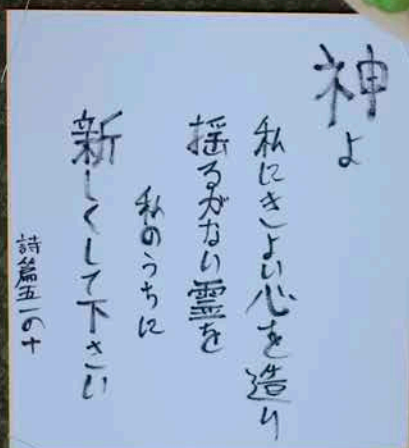 神よ
私にきよい心を造り
揺るがない霊を
私のうちに
新しくして下さい
詩篇五一の十